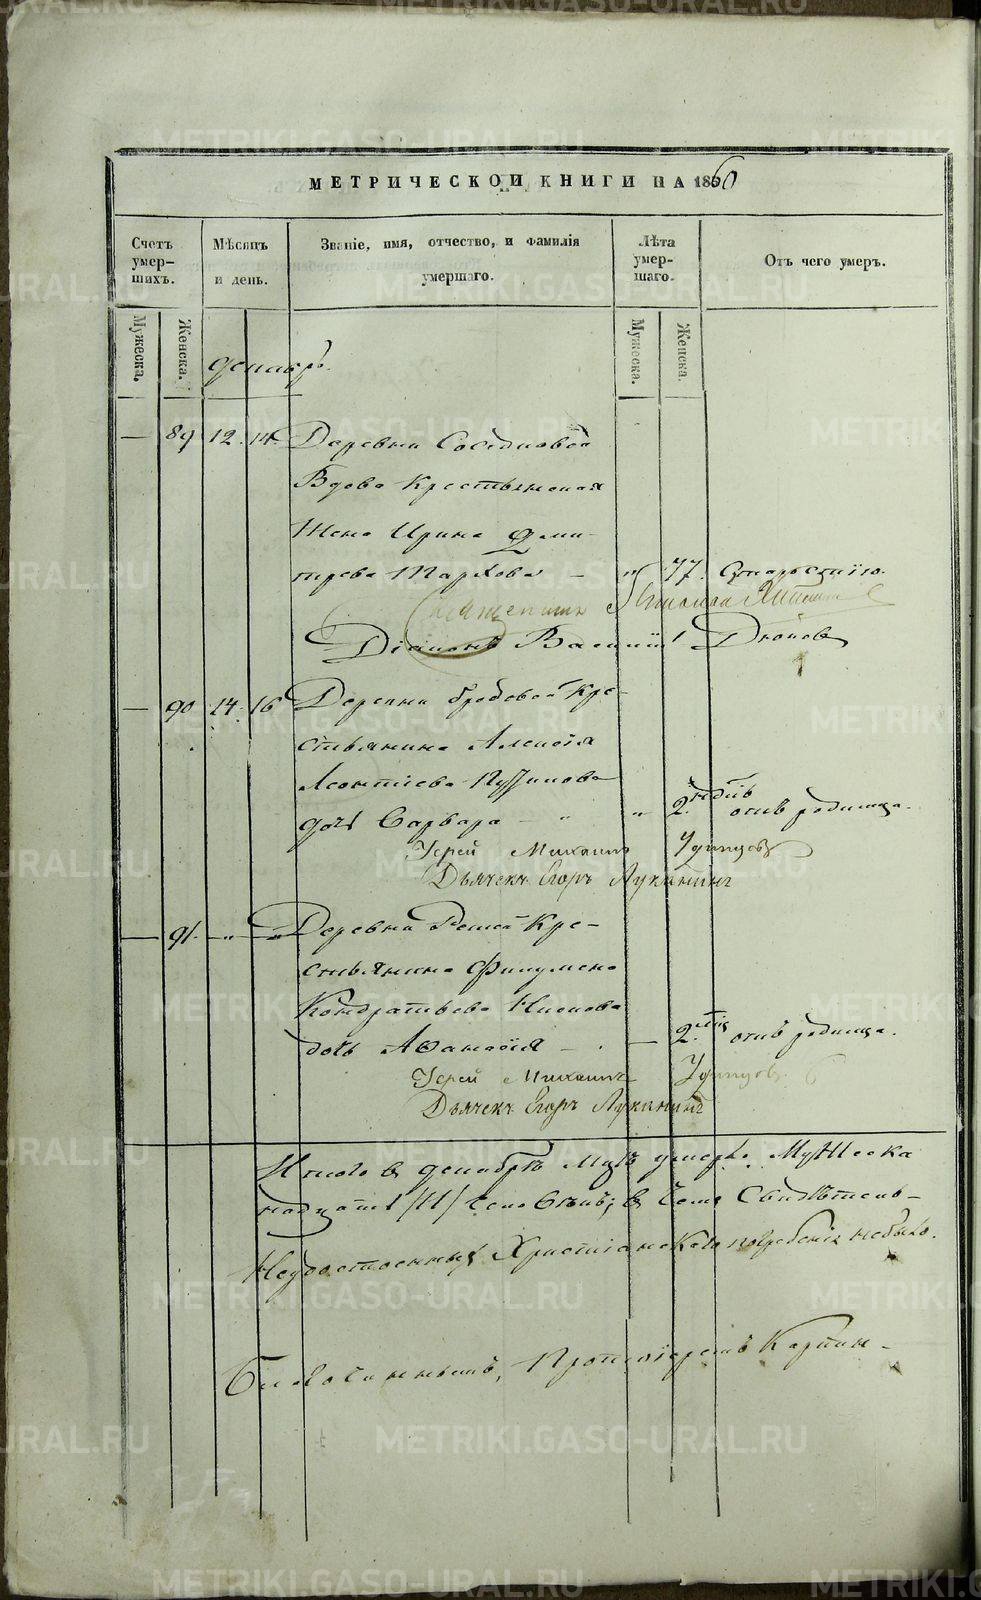 МЕТРИЧЕСКОЙ КНИГИ НА 1860
Счетъ умершихъ.
Мѣсяцъ и день.
Званіе, имя, отчество, и фамилія умершаго.
Лѣта умершаго.
Отъ чего умеръ.
Мужеска.
Женска.
Мужеска.
Женска.
декабрь.
— 89 12. 14. Деревни
Вдова Крестьянская
Жена Ирина Дими-
трева — „ 77. Старостiю.
Священникъ
Діаконъ Василій
— 90 14. 16 Деревни Бродовой Кре-
стьянина Алексѣя
Леонтіева
дочь Варвара — „ „ 2. недѣль отъ родимца.
Іерей Михаилъ Удинцовъ
Дьячекъ Егоръ Лукининъ
— 91. — „ — „ Деревни Кре-
стьянина Филумена
Кондратьева
дочь Афанасія — — 2. мѣс отъ родимца.
Іерей Михаилъ Удинцовъ
Дьячекъ Егоръ Лукининъ
Итого в декабрѣ Мцѣ умерло Мужеска
надцать /11/ Человѣкъ; в чемъ Свидѣтель-
Неудостоенныхъ Христіанскаго погребенія небыло.
Благочинный, Протоіерей
METRIKI.GASO-URAL.RU